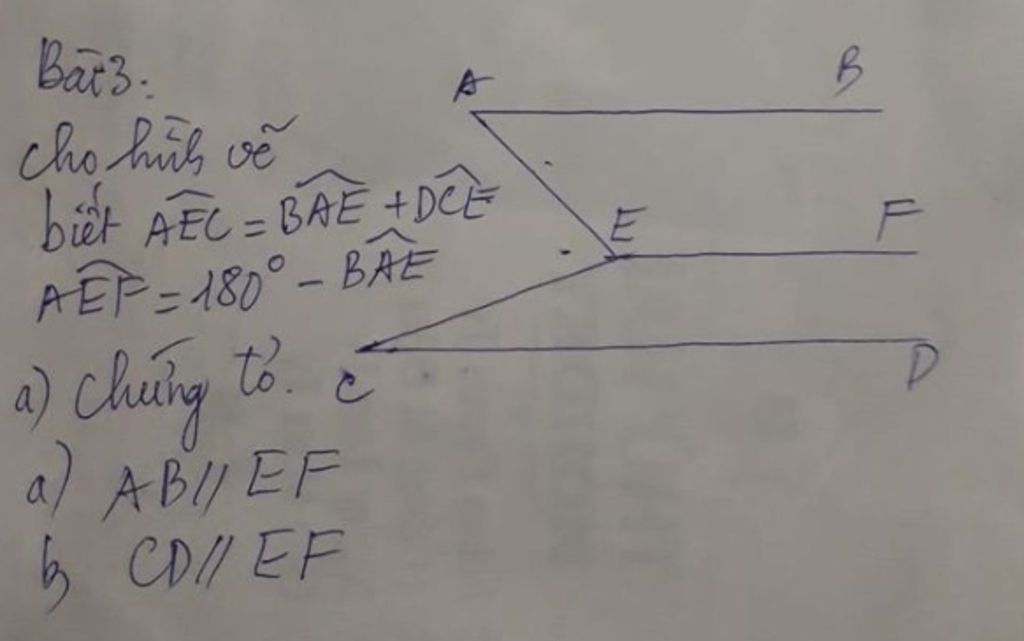 Bài 3:
cho hình vẽ
biết AEC = BAE + DCE
AEF = 180° - BAE
a) Chứng tỏ.
a) AB // EF
b, CD // EF
A B
E F
C D